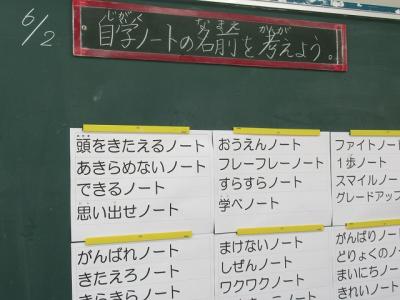 6/2
自学ノートの名前を考えよう。
じがく
なまえ
かんが
頭をきたえるノート
あきらめないノート
できるノート
思い出せノート
おうえんノート
フレーフレーノート
すらすらノート
学べノート
ファイトノート
1歩ノート
スマイルノー
グレードアップ
がんばれノート
きたえろノート
きらきらノート
まけないノート
しぜんノート
ワクワクノート
がんばりノート
どりょくのノー
まいにちノート
きれいノート